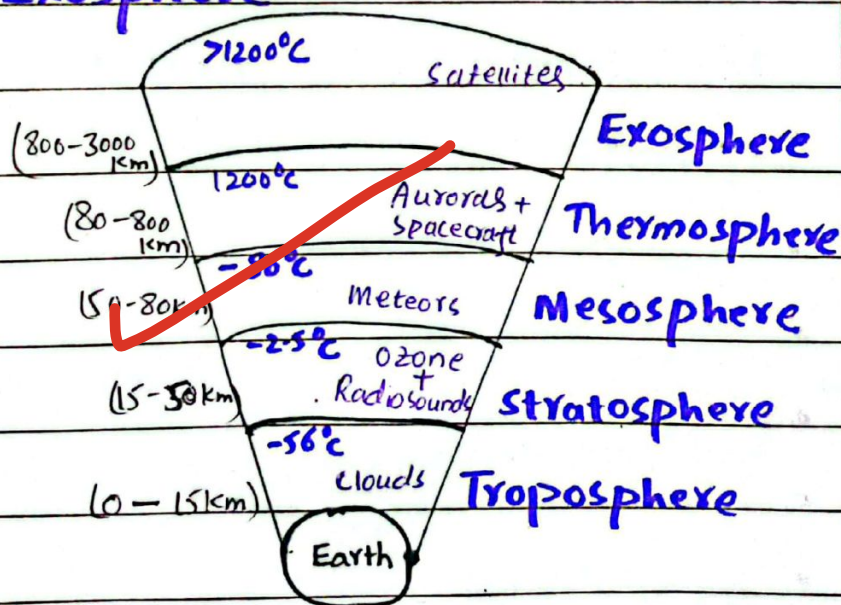 Exosphere
>1200°C
Satellites
Exosphere
(800-3000
Km)
1200°C
Auroras +
spacecraft
Thermosphere
(80-800
Km)
-80°C
Meteors
Mesosphere
(50-80km)
-2.5°C
Ozone
+
Radiosounds
Stratosphere
(15-50km)
-56°C
Clouds
Troposphere
(0-15km)
Earth